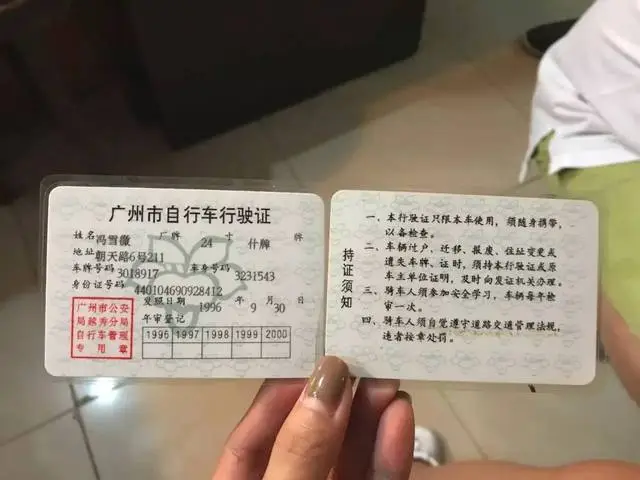 广州市自行车行驶证
姓名 冯雪微 厂牌 24 寸 什牌
地址 朝天路6号211
车牌号码 3018917 车身号码 3231543
身份证号码 440104690928412
发照日期 1996 年 9 月 30 日
年审登记
1996 1997 1998 1999 2000
广州市公安
局越秀分局
自行车管理
专用章
持证须知
一、本行驶证只限本车使用，须随身携带，
以备检查。
二、车辆过户、迁移、报废、住址变更或
遗失车牌、证时，须持本行驶证或原
车主单位证明，及时向发证机关办理。
三、骑车人须参加安全学习，车辆每年检
审一次。
四、骑车人须自觉遵守道路交通管理法规，
违者按章处罚。